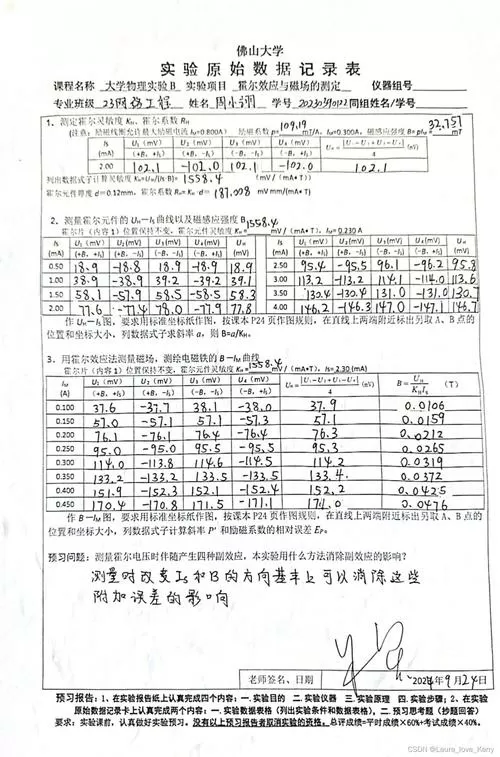 佛山大学
实验原始数据记录表
课程名称 大学物理实验B 实验项目 霍尔效应与磁场的测定 仪器组号
专业班级 23网络工程 姓名 周小鈅 学号 20230340122 同组姓名/学号
1. 测定霍尔灵敏度 KH、霍尔系数 RH
(注意:励磁线圈允许最大励磁电流 IM=0.800A) 励磁系数 p=109.19 mT/A, IM=0.300A, 磁感应强度 B=pIM= 32.757 mT
IS (mA) U1 (mV) (+B, +IS) U2 (mV) (+B, -IS) U3 (mV) (-B, +IS) U4 (mV) (-B, -IS) UH=|U1-U2+U3-U4|/4 (mV)
2.00 102.1 -102.0 102.1 -102.0 102.1
列出数据式子计算灵敏度 KH=UH/(IS·B)= 1558.4 (mV/(mA*T))
霍尔元件厚度 d=0.12mm, 霍尔系数 RH= KH·d= 187.008 mV mm/(mA*T)
2. 测量霍尔元件的 UH—IS 曲线以及磁感应强度 B
霍尔片(内容1)位置保持不变,霍尔元件灵敏度 KH=1558.4 mV/(mA*T), IM=0.230 A
IS (mA) U1 (mV) (+B, +IS) U2 (mV) (+B, -IS) U3 (mV) (-B, +IS) U4 (mV) (-B, -IS) UH (mV) IS (mA) U1 (mV) (+B, +IS) U2 (mV) (+B, -IS) U3 (mV) (-B, +IS) U4 (mV) (-B, -IS) UH (mV)
0.50 18.9 -18.8 18.9 -18.9 18.9 2.50 95.4 -95.5 96.1 -96.2 95.8
1.00 38.9 -38.9 39.2 -39.2 39.1 3.00 113.2 -113.2 114.1 -114.0 113.6
1.50 58.1 -57.9 58.5 -58.5 58.3 3.50 130.4 -130.4 131.0 -131.0 130.7
2.00 77.6 -77.4 78.0 -77.9 77.8 4.00 146.2 -146.3 147.0 -147.1 146.7
作 UH—IS 图,要求用标准坐标纸作图,按课本 P24 页作图规则,在直线上两端附近标出另取 A、B 点的
位置和坐标大小,列数据式子求斜率 a,则 B=a/KH。
3. 用霍尔效应法测量磁场,测绘电磁铁的 B—IM 曲线
霍尔片(内容1)位置保持不变,霍尔元件灵敏度 KH=1558.4 mV/(mA*T), IS=2.30 (mA)
IM (A) U1 (mV) (+B, +IS) U2 (mV) (+B, -IS) U3 (mV) (-B, +IS) U4 (mV) (-B, -IS) UH=|U1-U2+U3-U4|/4 (mV) B=UH/KHIS (T)
0.100 37.6 -37.7 38.1 -38.0 37.9 0.0106
0.150 57.0 -57.1 57.1 -57.3 57.1 0.0159
0.200 76.1 -76.1 76.4 -76.4 76.3 0.0212
0.250 95.0 -95.0 95.5 -95.5 95.3 0.0265
0.300 114.0 -113.8 114.6 -114.5 114.2 0.0319
0.350 133.2 -133.2 133.5 -133.5 133.4 0.0372
0.400 151.9 -152.3 152.1 -152.4 152.2 0.0425
0.450 170.4 -170.8 171.5 -171.1 171.0 0.0476
作 B—IM 图,要求用标准坐标纸作图,按课本 P24 页作图规则,在直线上两端附近标出另取 A、B 点的
位置和坐标大小,列数据式子计算斜率 P' 和励磁系数的相对误差 EP。
预习问题:测量霍尔电压时伴随产生四种副效应,本实验用什么方法消除副效应的影响?
测量时改变Is和B的方向基本上可以消除这些
附加误差的影响
老师签名、日期 2024年9月24日
预习报告:1、在实验报告纸上认真完成四个内容:一.实验目的 二.实验仪器 三.实验原理 四.实验步骤;2、在实验
原始数据记录卡上认真完成两个内容:一.实验数据表格(列出实验条件和数据表格)。二.预习思考题(抄题回答)
要求:实验课前,认真做好实验预习。没有以上预习报告者取消实验的资格。总评成绩=平时成绩×60%+考试成绩×40%。
CSDN @Laura_love_Kerry